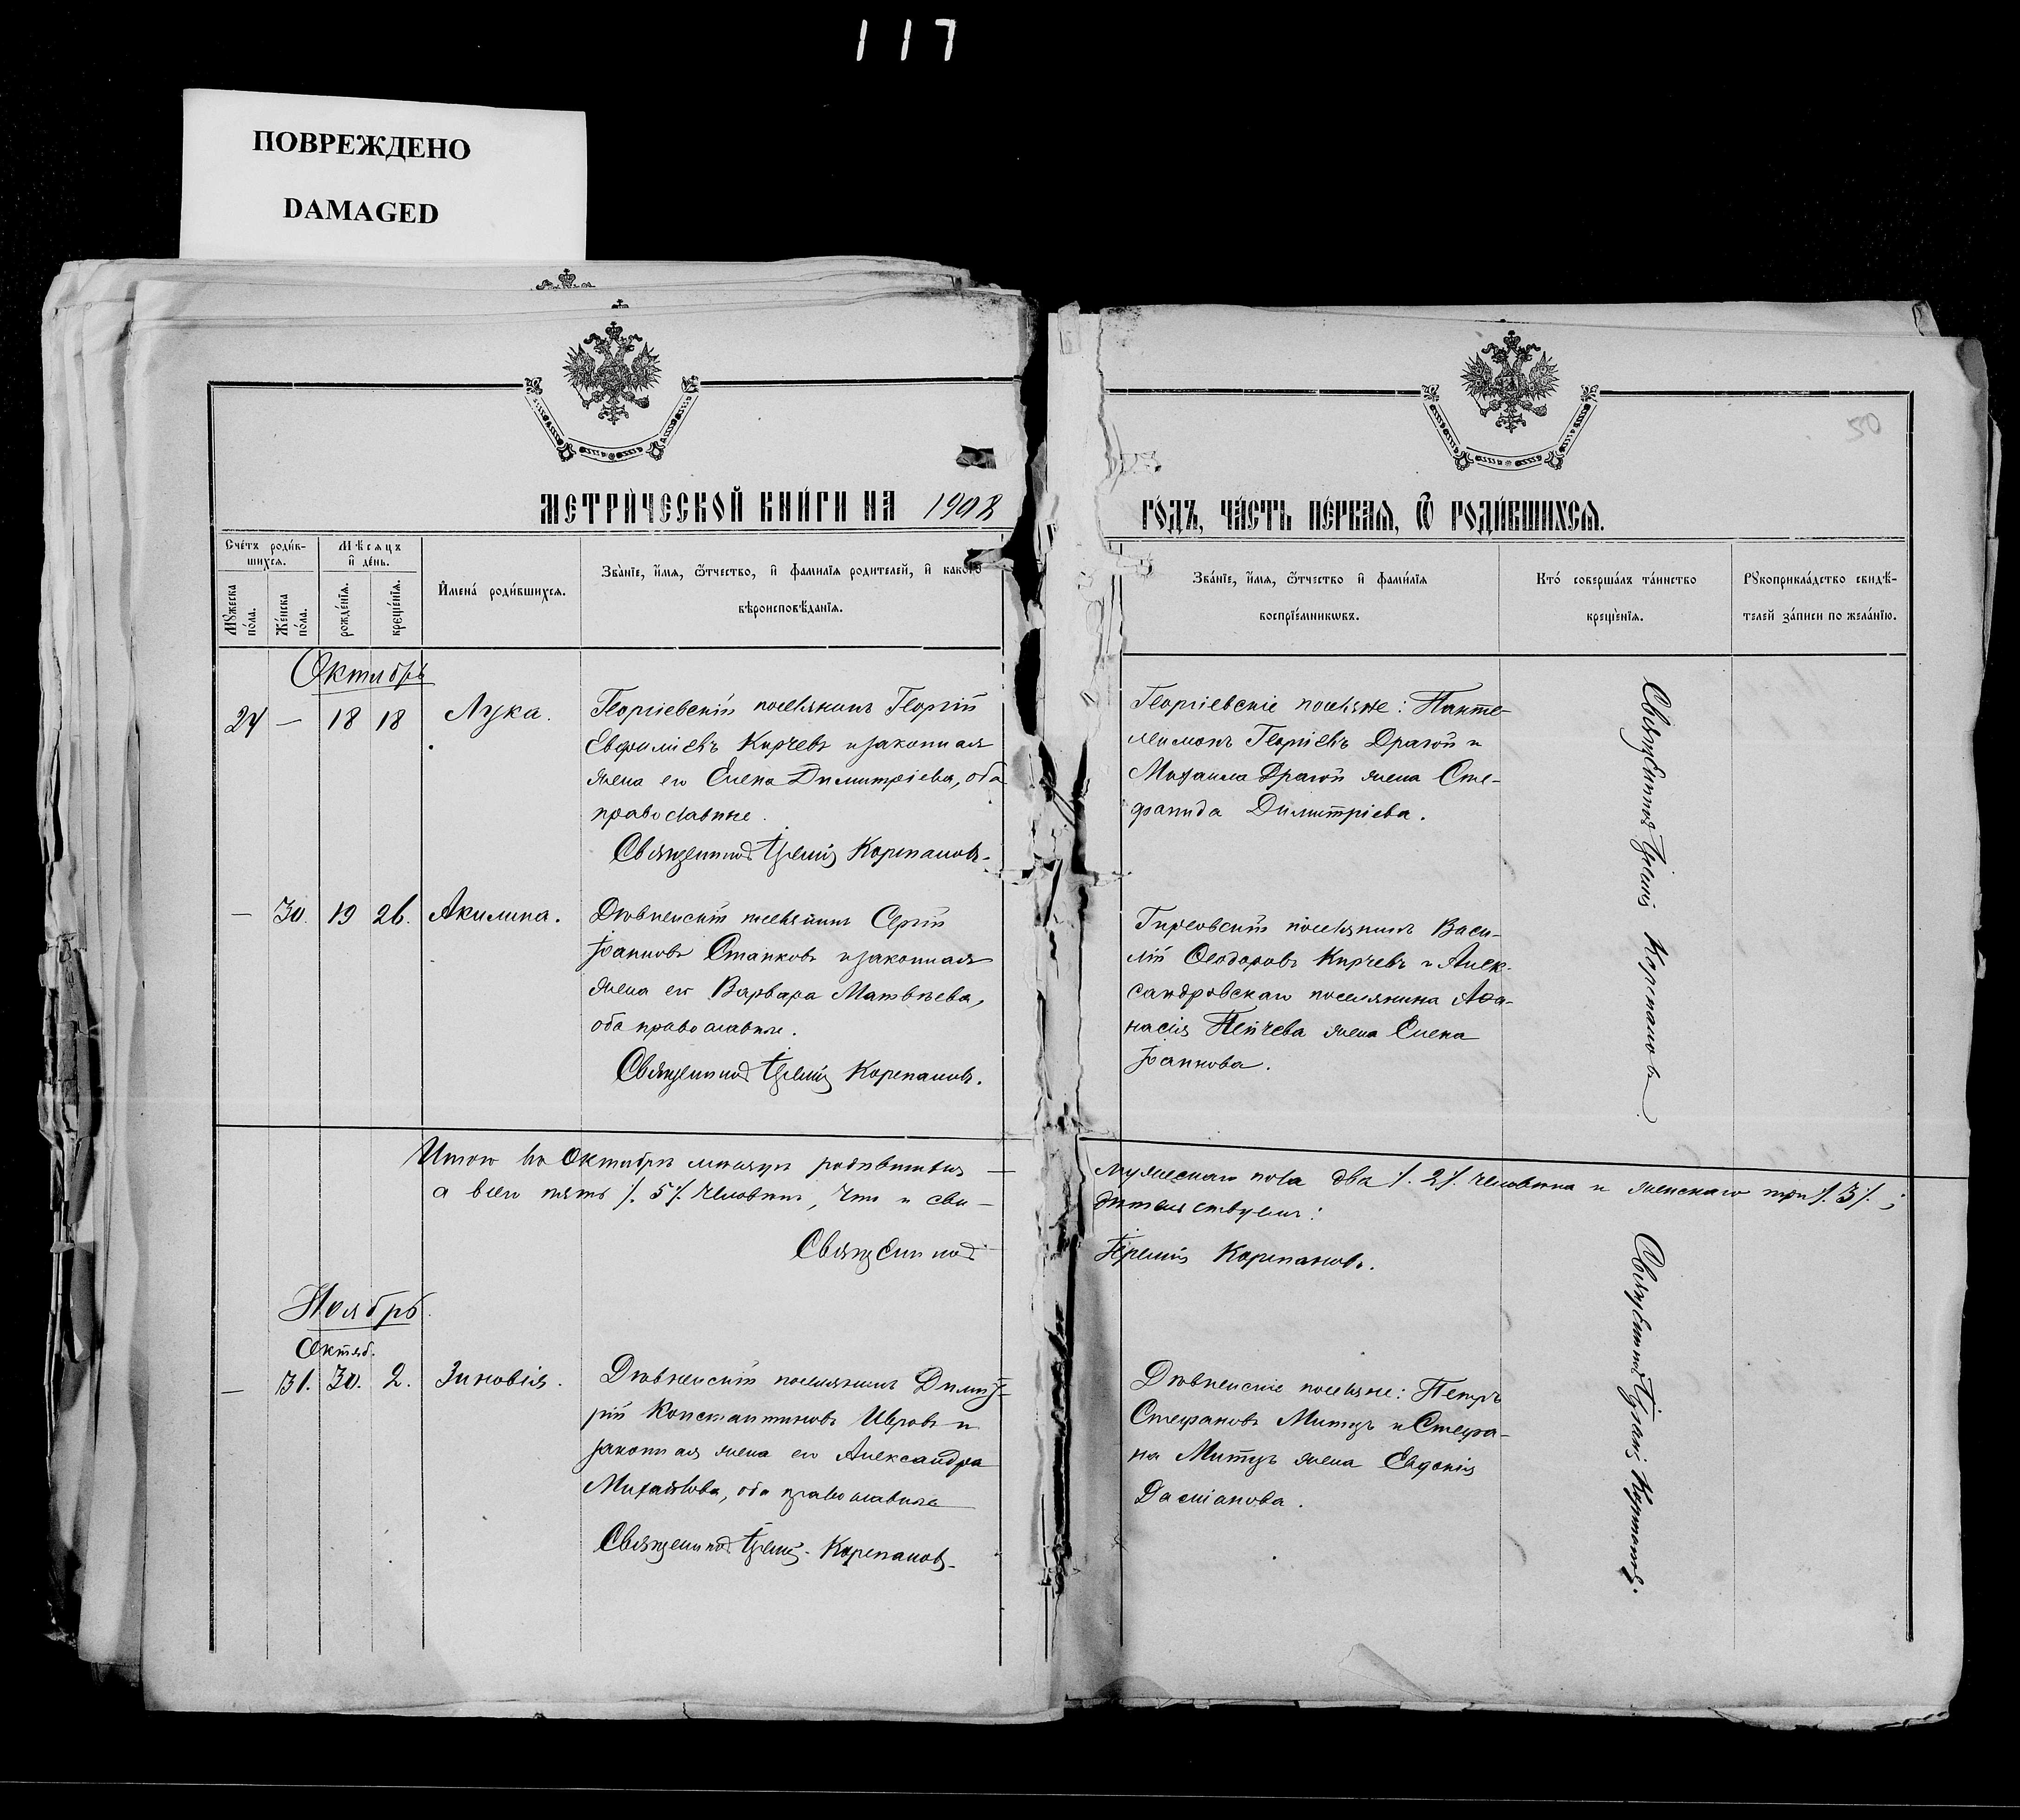 117
ПОВРЕЖДЕНО
DAMAGED
50
МЕТРИ́ЧЕСКОЙ КНИ́ГИ НА 1908
ГО́ДЪ, ЧА́СТЬ ПЕ́РВАЯ, Ѿ РОДИ́ВШИХСЯ.
Сче́тъ роди́в-
шихся.
Му́жеска
по́ла.
Же́нска
по́ла.
Мѣ́сяцъ
и де́нь.
рожде́нїя.
креще́нїя.
Имена́ роди́вшихся.
Зва́нїе, и́мя, ѻ́тчество, и фами́лїя родителей, и како́гѡ
вѣроисповѣ́данїя.
Зва́нїе, и́мя, ѻ́тчество и фами́лїя
воспрїе́мникѡвъ.
Кто́ соверша́лъ та́инство
креще́нїя.
Рꙋкоприкла́дство свидѣ́-
телей за́писи по жела́нїю.
Октябрь
24 — 18 18 Лука.
Георгіевскій поселянинъ Георгій
Евфиміевъ Кирчевъ и законная
жена его Елена Димитріева, оба
православные.
Священникъ Іеремія Корепановъ.
Георгіевскіе поселяне: Панте-
леимонъ Георгіевъ Драгой и
Михаила Драгой жена Сте-
фанида Димитріева.
Священникъ Іеремія Корепановъ
— 30. 19 26. Акилина.
Дювменскій поселянинъ Сергій
Іоанновъ Станковъ и законная
жена его Варвара Матвѣева,
оба православные.
Священникъ Іеремія Корепановъ.
поселянинъ Васи-
лій Ѳеодоровъ Кирчевъ и Алек-
сандровскаго поселянина Аѳа-
насія Пейчева жена Елена
Іоаннова.
Итого въ Октябрѣ мѣсяцѣ родившихся —
мужескаго пола два ٪. 2٪. человѣка и женскаго три ٪. 3٪.;
а всего пять ٪. 5٪. человѣкъ, что и сви—
дѣтельствуемъ:
Священникъ
Іеремія Корепановъ.
Ноябрь.
Октяб.
— 31. 30. 2. Зиновія.
Дювменскій поселянинъ Димит-
рій Константиновъ и
законная жена его Александра
Михайлова, оба православные
Священникъ Іеремія Корепановъ
Дювменскіе поселяне: Петръ
Стефановъ Митъ и Стефа-
на Митъ жена Евдокія
Даміанова.
Священникъ Іеремія Корепановъ.